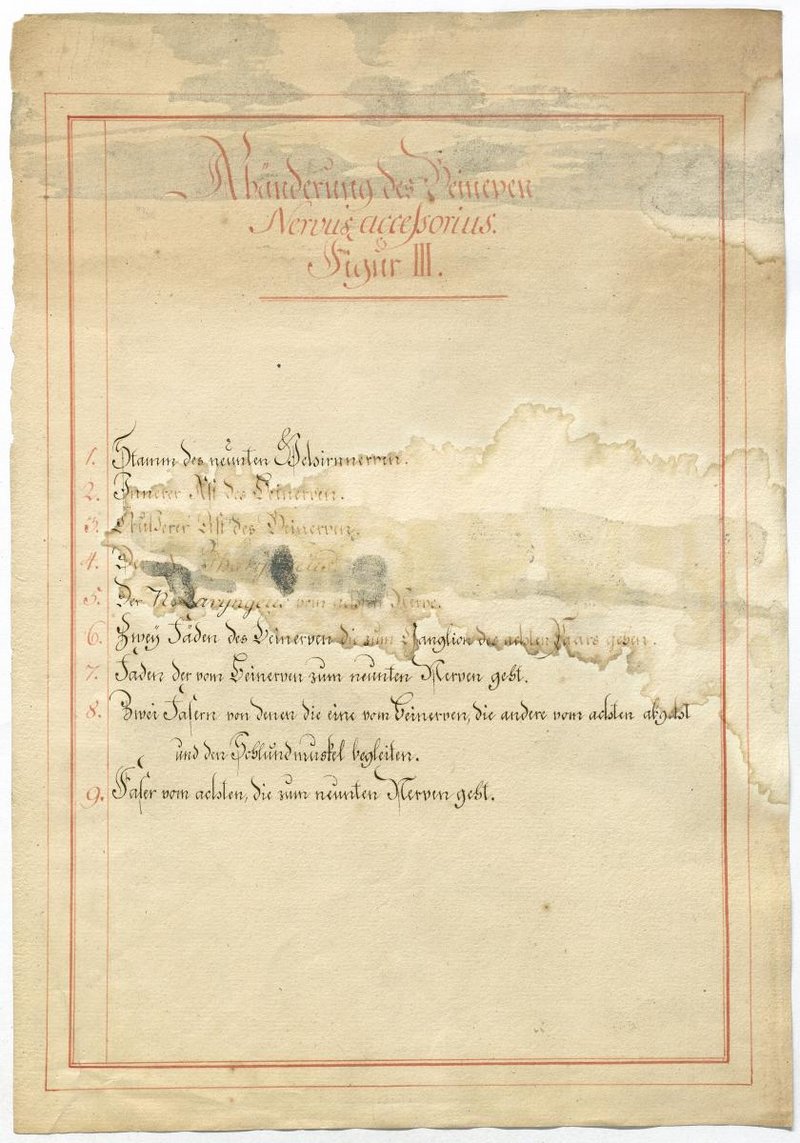 Abänderung des Beinerven
Nervus accessorius.
Figur III.
1. Stamm des neunten Gehirnnerven.
2. Innerer Ast des Beinerven.
3. Äußerer Ast des Beinerven.
4. Der
5. Der N. Laryngeus vom achten Nerve.
6. Zwey Fäden des Beinerven die zum Ganglion des achten Paars gehen.
7. Faden der vom Beinerven zum neunten Nerven geht.
8. Zwei Fasern von denen die eine vom Beinerven, die andere vom achten abgeht
und den Schlundmuskel begleiten.
9. Faser vom achten, die zum neunten Nerven geht.